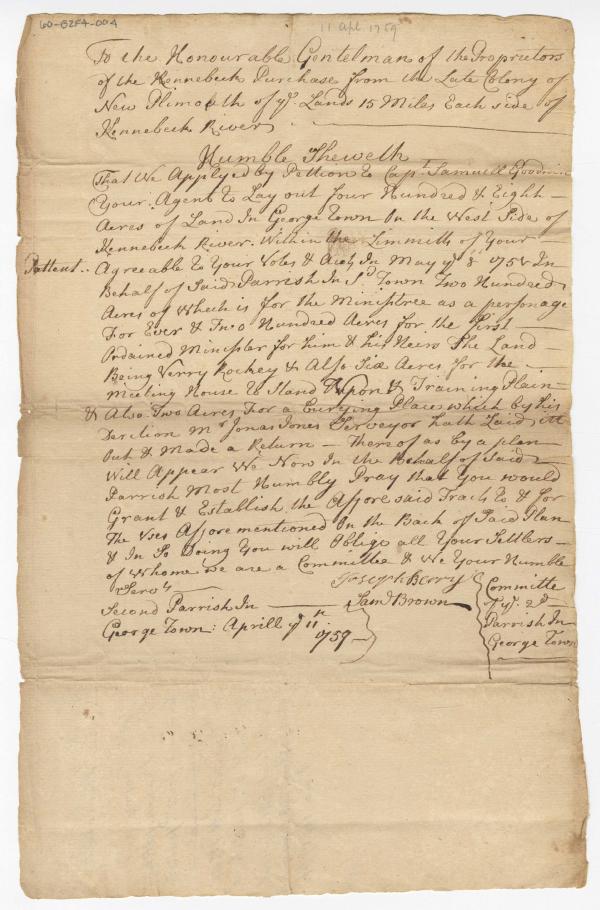 60-B2F4-004
11 Apl 1759
To the Honourable Gentelman of the Proprietors
of the Kennebeck Purchase from the Late Colony of
New Plimoth of ye Lands 15 Miles Each side of
Kennebeck River
Humble Sheweth
That We Applyed by Petition to Capt Samuell Goodwin
Your Agent to Lay out four Hundred & Eight
Acres of Land In George Town On the West Side of
Kennebeck River Within the Limmitts of Your
Pattent Agreable to Your Votes & In May ye 8 1758 In
Behalf of Said Parrish In Sd Town Two Hundred
Acres of Which is for the Ministree as a personage
For Ever & Two Hundred Acres for the first
Ordained Minister for Him & his Heirs The Land
Being Verry Rockey & Also Six Acres for the
Meeting House to Stand Upon & Training Plain
& Also Two Acres For a Burying Place which by his
Dection Mr Jonas Jones Serveyor hath Laid itt
Out & Made a Return - thereof as by a plan
Will Appear We Now In the Behalf of Said
Parrish Most Humbly Pray that You would
Grant & Establish the Affore said Tracts to & for
The Uses Afforementioned On the Back of Said Plan
& In So Doing You will Oblige all Your Settlers
of Whome we are a Committee & We Your Humble
Servts
Joseph Berry
Saml Brown
Committe
of ye 2d
Parrish In
George Town
Second Parrish In
George Town: Aprill ye 11th
1759